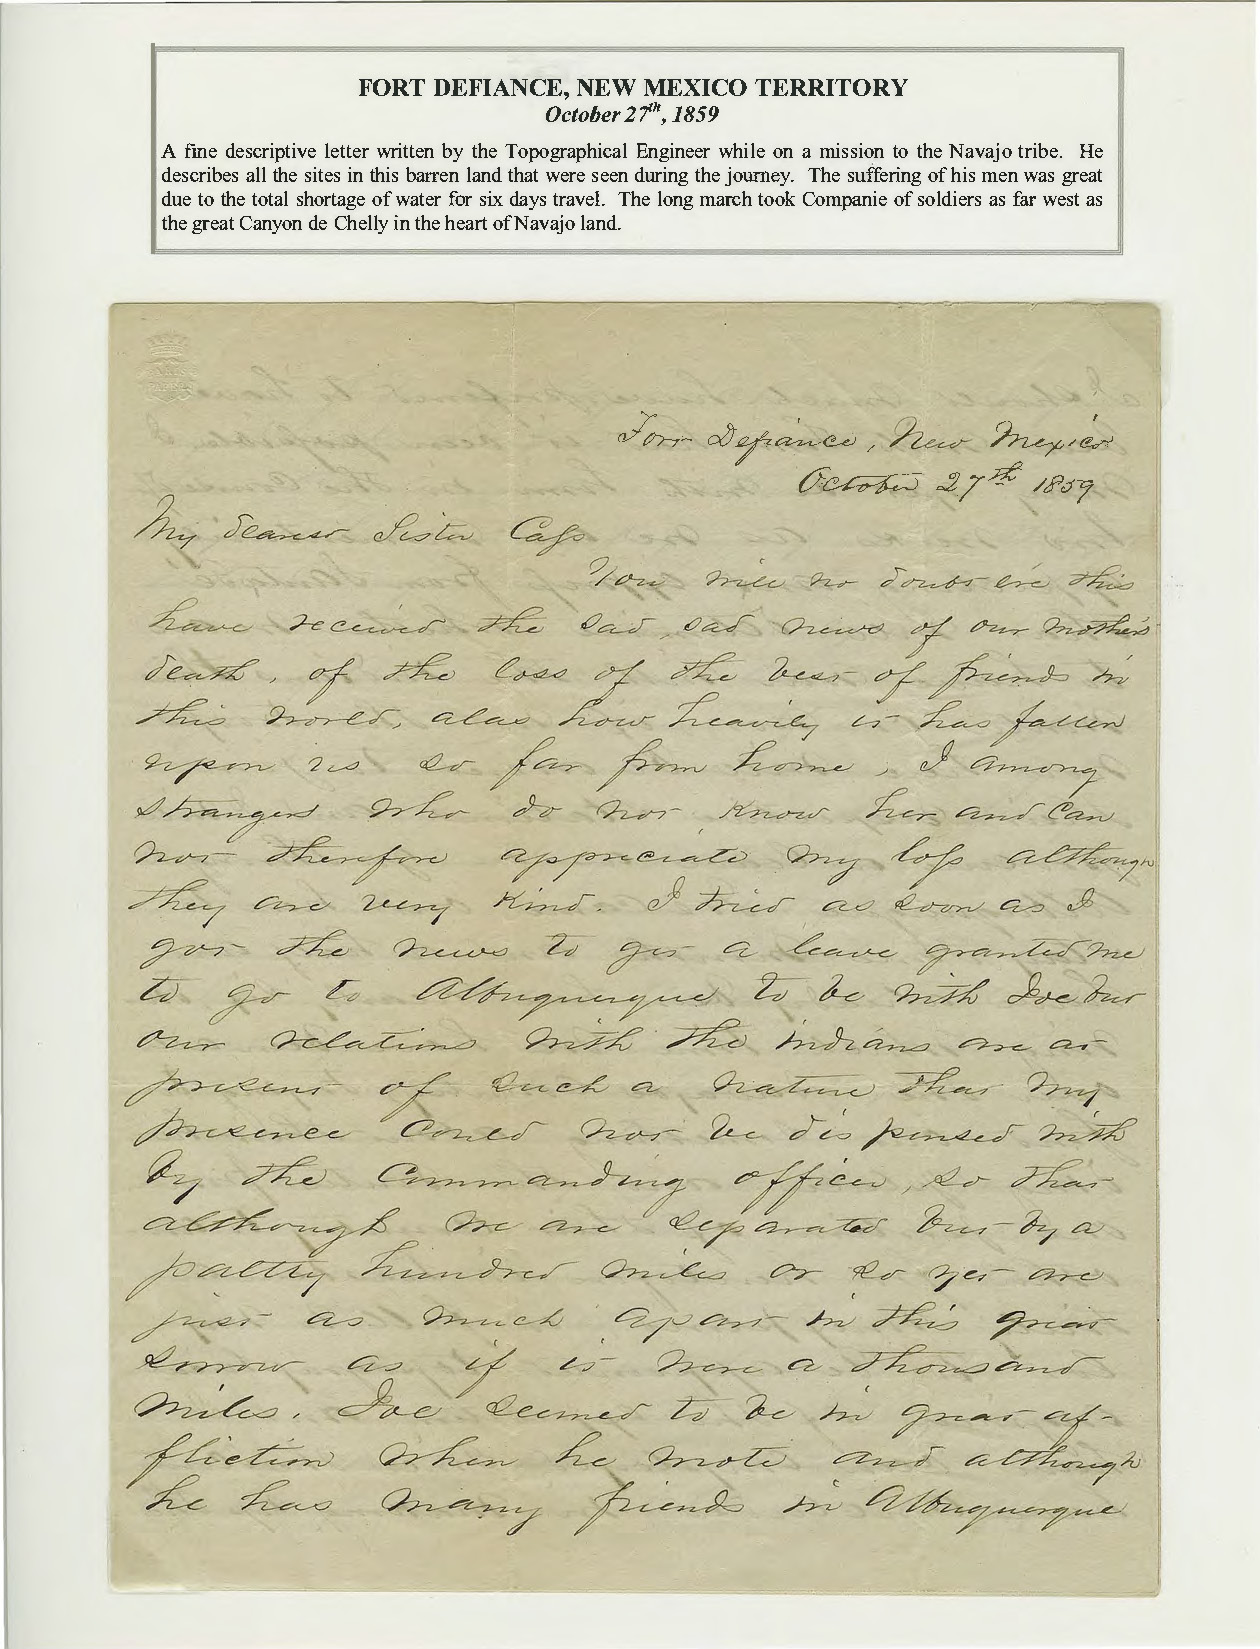 FORT DEFIANCE, NEW MEXICO TERRITORY
October 27th, 1859
A fine descriptive letter written by the Topographical Engineer while on a mission to the Navajo tribe. He
describes all the sites in this barren land that were seen during the journey. The suffering of his men was great
due to the total shortage of water for six days travel. The long march took Companie of soldiers as far west as
the great Canyon de Chelly in the heart of Navajo land.
Fort Defiance, New Mexico
October 27th 1859
My dearest Sister Cass
You will no doubt ere this
have received the sad, sad news of our mother's
death, of the loss of the best of friends in
this world, alas how heavily it has fallen
upon us so far from home, I among
strangers who do not know her and can
not therefore appreciate my loss although
they are very kind. I tried as soon as I
got the news to get a leave granted me
to go to Albuquerque to be with Joe but
our relations with the indians are at
present of such a nature that my
presence could not be dispensed with
by the Commanding officer, so that
although we are separated but by a
paltry hundred miles or so yet are
just as much apart in this great
sorrow as if it were a thousand
miles. Joe seemed to be in great af-
fliction when he wrote and although
he has many friends in Albuquerque